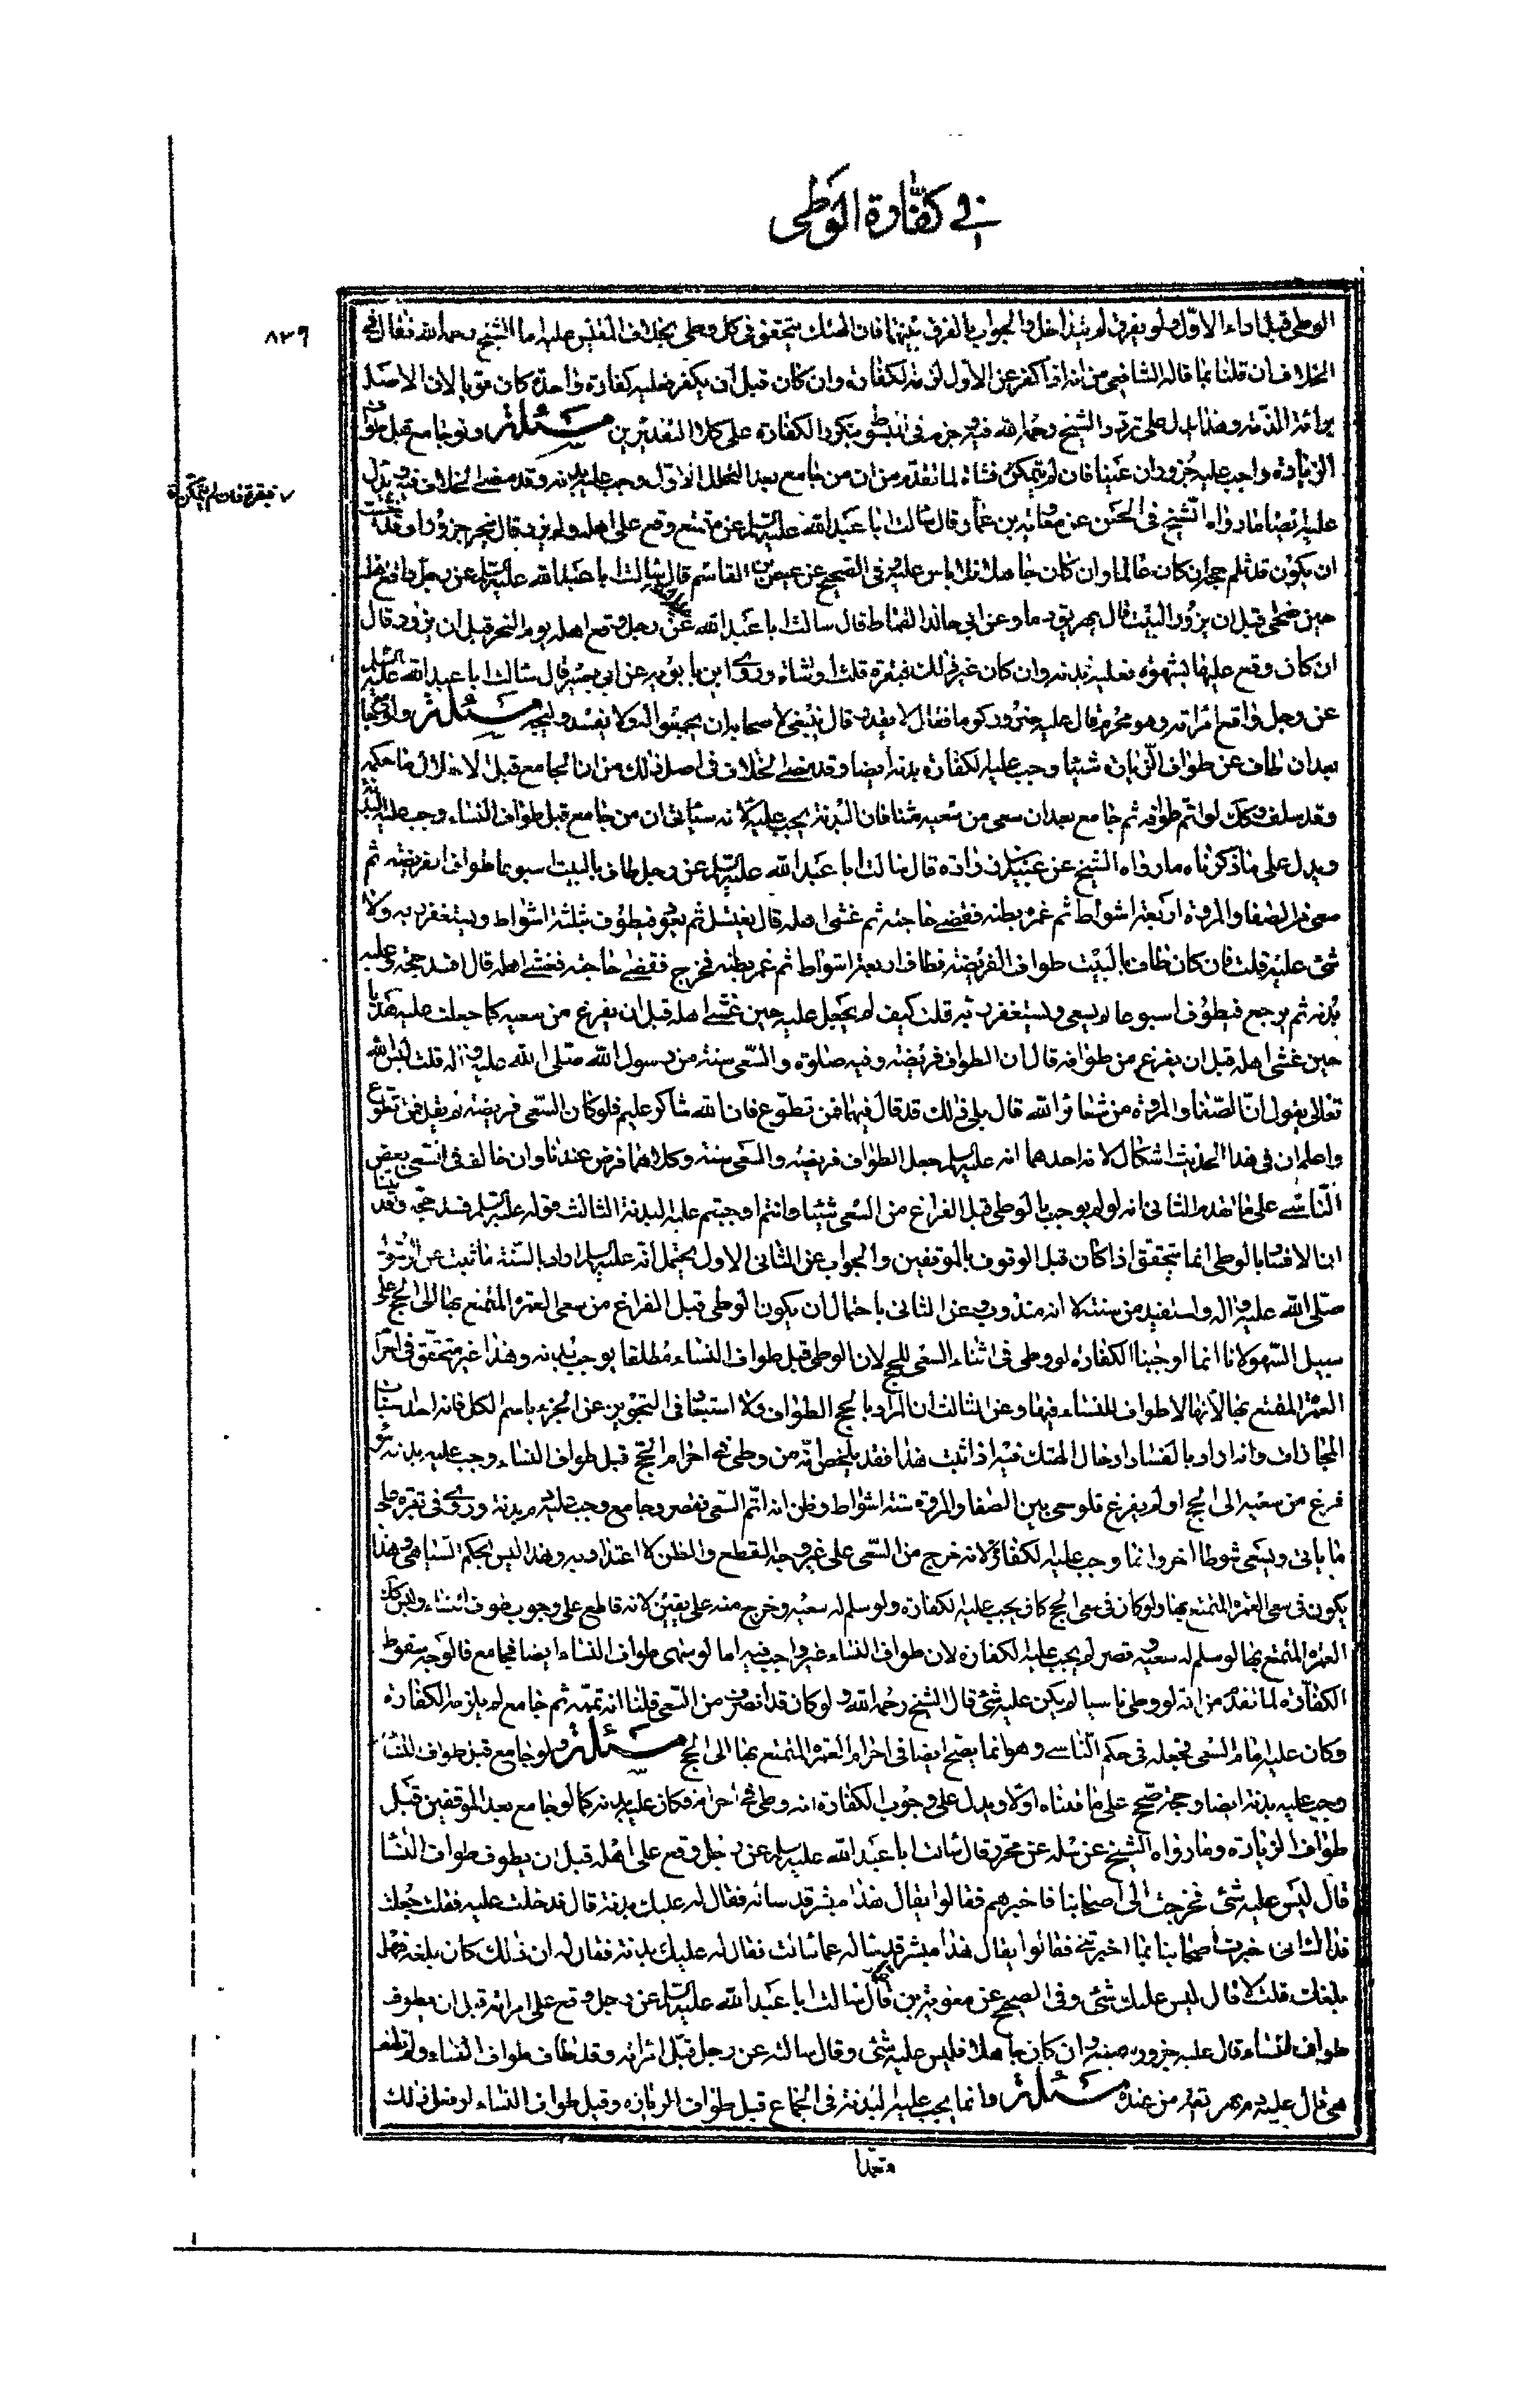 في كفّارة الوطى
٨٣٩
الوطى قبل اداء الاوّل ولو بفرق لم يتداخل والجواب بالفرق بينهما فان الهتك يتحقق فى كل وطى بخلاف اللبس عليه اما الشيخ رحمه الله فقال فى
الخلاف ان قلنا بما قاله الشافعي من انه اذا كفر عن الاول لزمته الكفارة وان كان قبل ان يكفر فعليه كفارة واحدة كان قويا لان الاصل
برائة الذمة وهذا يدل على تردد الشيخ رحمه الله فيه وجزم فى المبسوط بتكرر الكفارة على كلا التقديرين مسئلة ولو جامع قبل طواف
الزيارة واجب عليه جزور ان عينا فان لم يتمكن فشاة لما تقدم من ان من جامع بعد التحلل الاول وجب عليه بدنه وقد مضى الخلاف فيه ويدل
٧ فبقرة فان لم يتمكن
عليه ايضا ما رواه الشيخ فى الحسن عن معوية بن عمار قال سالت ابا عبد الله عليه السلم عن متمتع وقع على اهله ولم يزر قال ينحر جزورا وقد خشيت
ان يكون قد ثلم حجه ان كان عالما وان كان جاهلا فلا باس عليه وفى الصحيح عن عيص بن القاسم قال سالت ابا عبد الله عليه السلم عن رجل واقع اهله
حين ضحى قبل ان يزور البيت قال يهريق دما وعن ابى خالد القماط قال سالت ابا عبد الله عن رجل وقع اهله يوم النحر قبل ان يزور قال
ان كان وقع عليها بشهوة فعليه بدنه وان كان غير ذلك فبقرة قلت او شاة وروى ابن بابويه عن ابى بصير قال سالت ابا عبد الله عليه السلم
عن رجل واقع امراته وهو محرم قال عليه جزور كوما فقال لا يقدر قال ينبغى لاصحابه ان يجمعوا له ولا يفسدوا حجه مسئلة ولو جامع
بعد ان طاف عن طواف الزيارة شيئا وجب عليه الكفارة بدنه ايضا وقد مضى الخلاف فى اصل ذلك من ان الجامع قبل الاخلال ما حكمه
وقد سلف وكك لو اتم طوافه ثم جامع بعد ان سعى من سعيه شيئا فان البدنة يجب عليه لانه سياتى ان من جامع قبل طواف النساء وجب عليه البدنة
ويدل على ما ذكرناه ما رواه الشيخ عن عبيد بن زرارة قال سالت ابا عبد الله عليه السلم عن رجل طاف بالبيت اسبوعا طواف الفريضة ثم
سعى بين الصفا والمروة اربعة اشواط ثم غمزه بطنه فقضى حاجته ثم غشى اهله قال يغتسل ثم يعود فيطوف ثلثة اشواط ويستغفر ربه ولا
شئ عليه قلت فان كان طاف بالبيت طواف الفريضة فطاف اربعة اشواط ثم غمزه بطنه فخرج فقضى حاجته فغشى اهله قال افسد حجه وعليه
بدنه ثم يرجع فيطوف اسبوعا ثم يسعى ويستغفر ربه قلت كيف لم يجعل عليه حين غشى اهله قبل ان يفرغ من سعيه كما جعلت عليه هديا
حين غشى اهله قبل ان يفرغ من طوافه قال ان الطواف فريضه وفيه صلوة والسعى سنة من رسول الله صلى الله عليه واله قلت اليس الله
تعالى يقول ان الصفا والمروة من شعائر الله قال بلى ولكن قد قال فيهما فمن تطوع فان الله شاكر عليم فلو كان السعى فريضة لم يقل فمن تطوع
واعلم ان فى هذا الحديث اشكال لانه احدهما انه عليه السلم جعل الطواف فريضه والسعى سنة وكلاهما فرض عندنا وان خالف فى السعى بعض
الناس على ما تقدم الثانى انه لو لم يوجب بالوطى قبل الفراغ من السعى شيئا وانتم اوجبتم عليه البدنة الثالث قوله عليه السلم فسد حجه وقد بينا
ان الافساد بالوطى انما يتحقق اذا كان قبل الوقوف بالموقفين والجواب عن الاول يحتمل انه عليه السلم اراد بالسنة ما ثبت عن الرسول
صلى الله عليه واله واستفيد من سنته لا انه مندوب وعن الثانى باحتمال ان يكون الوطى قبل الفراغ من سعى العمرة المتمتع بها الى الحج على
سبيل السهو لانا انما اوجبنا الكفارة لو وطى فى اثناء السعى للحج لان الوطى قبل طواف النساء مطلقا يوجب البدنه وهذا غير متحقق فى احرام
العمرة المتمتع بها لانها لا طواف للنساء فيها وعن الثالث ان المراد بالحج الطواف ولا استبعاد فى التجوز عن الجزء باسم الكل فانه احد اسباب
المجازات وانه اراد بالفساد ادخال الهتك فيه اذا ثبت هذا فقد يلخص انه من وطى فى احرام الحج قبل طواف النساء وجب عليه بدنه سواء
فرغ من سعيه الى الحج او لم يفرغ فلو سعى بين الصفا والمروة ستة اشواط وظن انه اتم السعى فقصر وجامع وجب عليه دم بدنه وروى فى بقرة على
ما ياتى ويسعى شوطا اخر وانما وجب عليه الكفارة لانه خرج من السعى على غير وجه القطع والظن لا اعتذار به وهذا ليس بحكم الساهى وهذا
يكون فى سعى العمرة المتمتع بها ولو كان فى سعى الحج كان يجب عليه الكفارة ولو سلم له سعيه وخرج منه على يقين لانه قاطع على وجوب طواف النساء وليس كك
العمرة المتمتع بها لو سلم له سعيه وقصر لم يجب عليه الكفارة لان طواف النساء غير واجب فيه اما لو سهى طواف النساء ايضا فجامع فالوجه سقوط
الكفارة لما تقدم من انه لو وطى ناسيا لم يكن عليه شئ قال الشيخ رحمه الله ولو كان قد انصرف من السعى قلنا انه تممه ثم جامع لم يلزمه الكفارة
وكان عليه تمام السعى فجعله فى حكم الناسى وهو انما يصح ايضا فى احرام العمرة المتمتع بها الى الحج مسئلة ولو جامع قبل طواف النساء
وجب عليه بدنة ايضا وحجه صحيح على ما قدمناه اولا ويدل على وجوب الكفارة انه وطى فى احرامه فكان عليه بدنه كما لو جامع بعد الموقفين قبل
طواف الزيارة وما رواه الشيخ عن سلمه عن محرز قال سالت ابا عبد الله عليه السلم عن رجل وقع على اهله قبل ان يطوف طواف النساء
قال ليس عليه شئ فخرجت الى اصحابنا فاخبرهم فقالوا اتقاك هذا ميسر قد ساله فقال له عليك بدنة قال فدخلت عليه فقلت جعلت
فداك انى اخبرت اصحابنا بما اخبرتنى فقالوا اتقاك هذا ميسر قد ساله عما سالت فقال له عليك بدنة فقال له ان ذلك كان بلغه فهل
بلغك قلت لا قال ليس عليك شئ وفى الصحيح عن معوية بن عمار قال سالت ابا عبد الله عليه السلم عن رجل وقع على امراته قبل ان يطوف
طواف النساء قال عليه جزور سمينه وان كان جاهلا فليس عليه شئ وقال سالته عن رجل قبّل امراته وقد طاف طواف النساء ولم تطف
هى قال عليه دم يهريقه من عنده مسئلة وانما يجب عليه البدنة فى الجماع قبل طواف الزيارة وقبل طواف النساء لو فعل ذلك
متعمدا